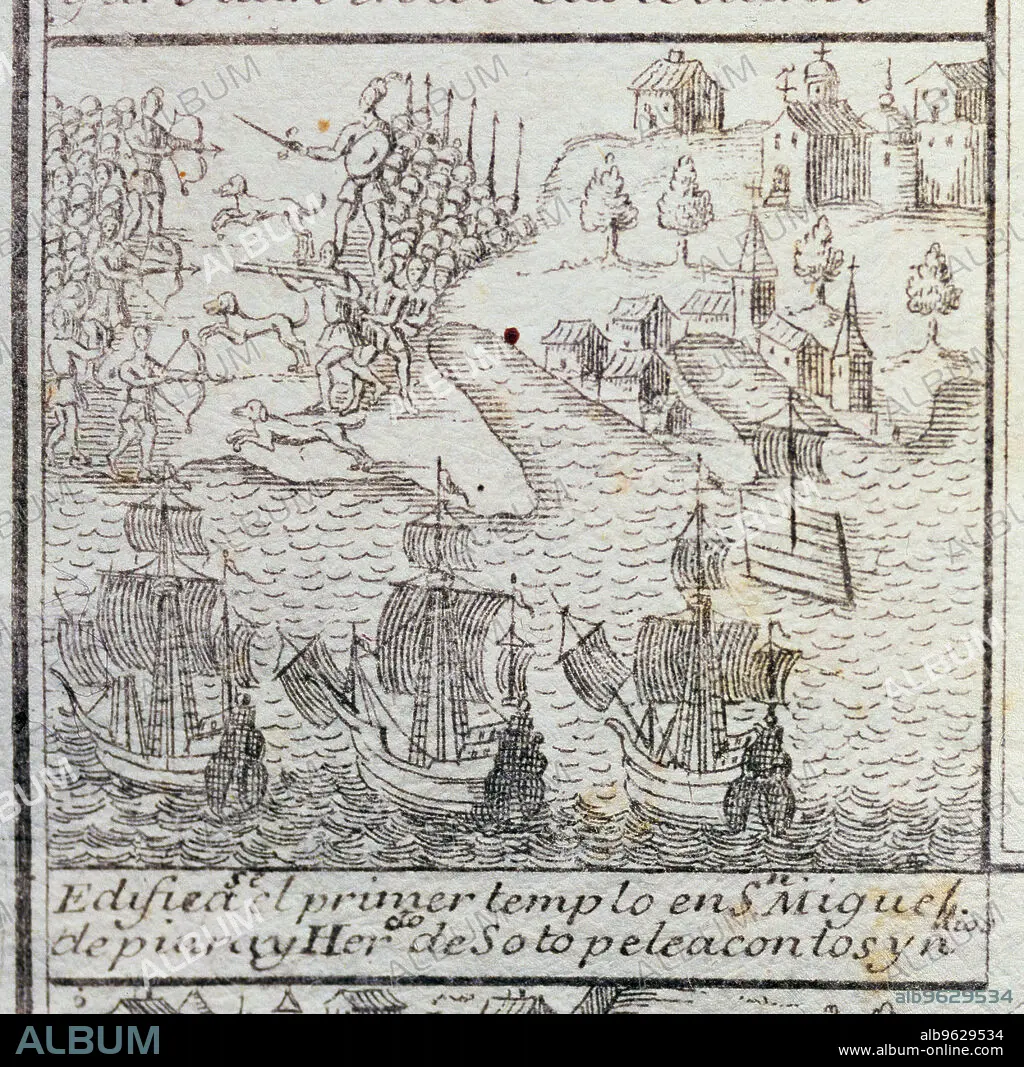 Edificase el primer templo en Sn. Miguel.
de piura, y Herdo. de Soto pelea con los yndios
ALBUM
alb9629534
alb9629534
www.album-online.com